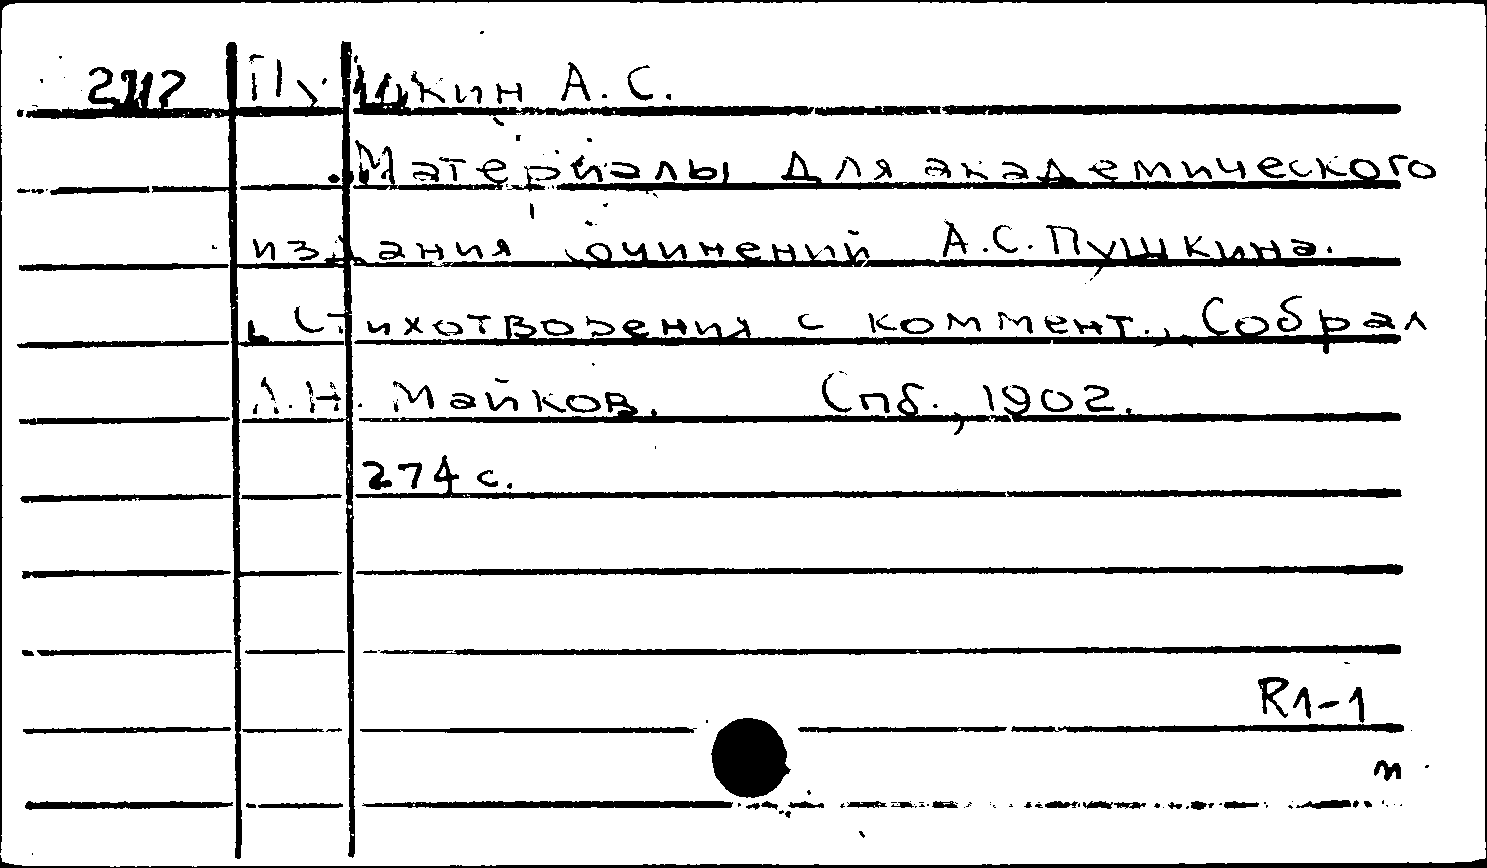 Пушкин А.С.
Материалы для академического
издания сочинений А.С. Пушкина.
Стихотворения с коммент., Собрал
Л.Н. Майков. Спб., 1902.
274 с.
R1-1
m